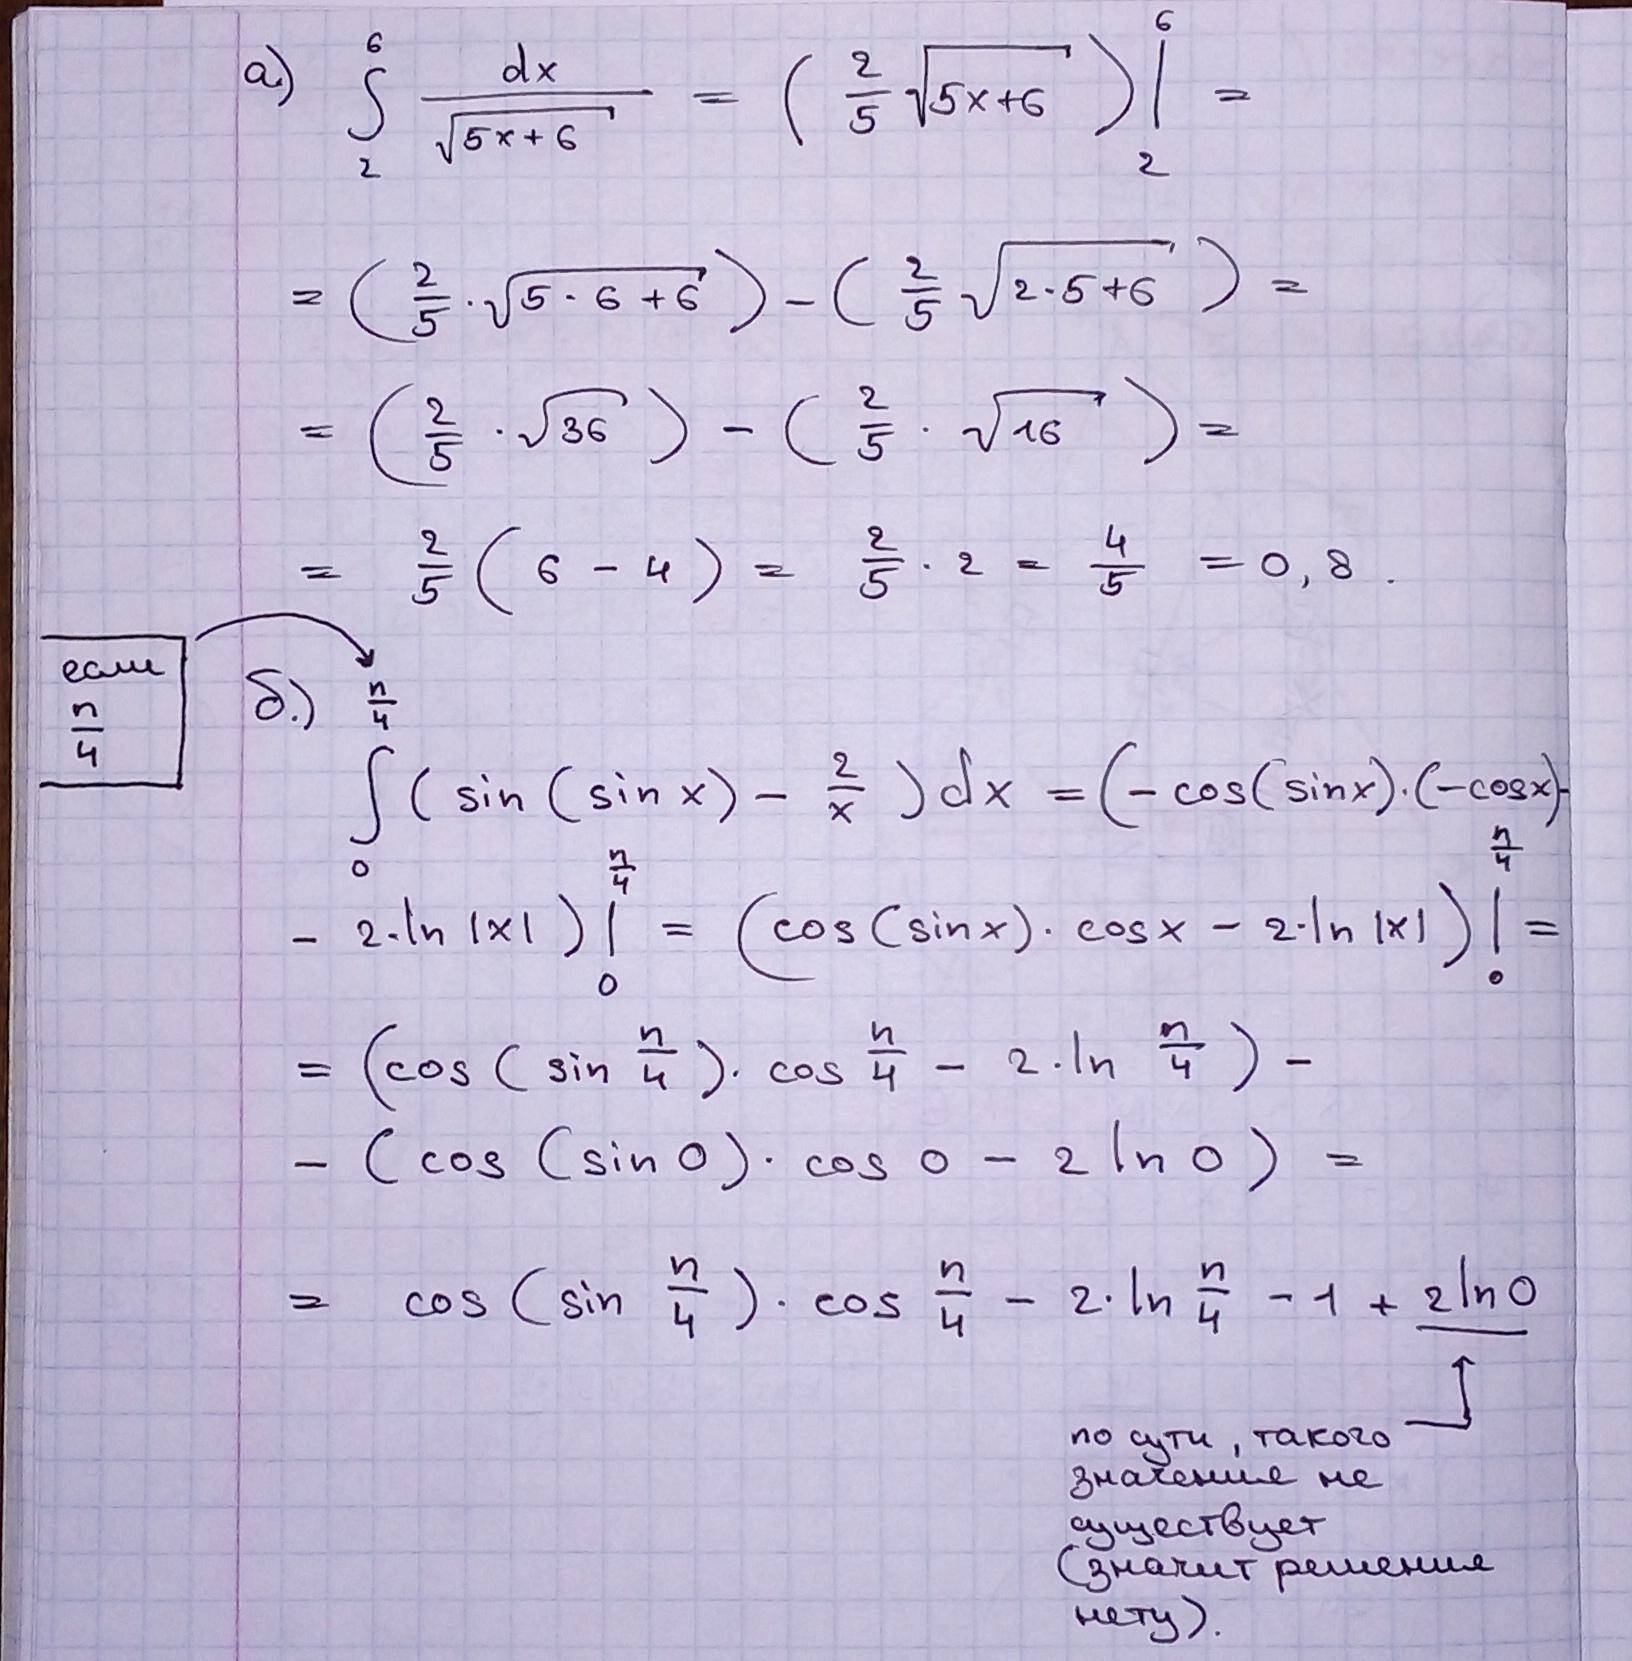 а.) ∫₂⁶ dx/√(5x+6) = (2/5 √(5x+6))|₂⁶ =
= (2/5 · √(5·6+6)) − (2/5 √(2·5+6)) =
= (2/5 · √36) − (2/5 · √16) =
= 2/5 (6 − 4) = 2/5 · 2 = 4/5 = 0,8.
если
n/4
б.) ∫₀^(n/4) (sin(sin x) − 2/x) dx = (−cos(sinx)·(−cosx)−
− 2·ln|x|)|₀^(n/4) = (cos(sinx)· cosx − 2·ln|x|)|₀^(n/4) =
= (cos(sin n/4)· cos n/4 − 2·ln n/4) −
− (cos(sin0)· cos0 − 2ln0) =
= cos(sin n/4)· cos n/4 − 2·ln n/4 − 1 + 2ln0
по сути, такого
значения не
существует
(значит решения
нету).